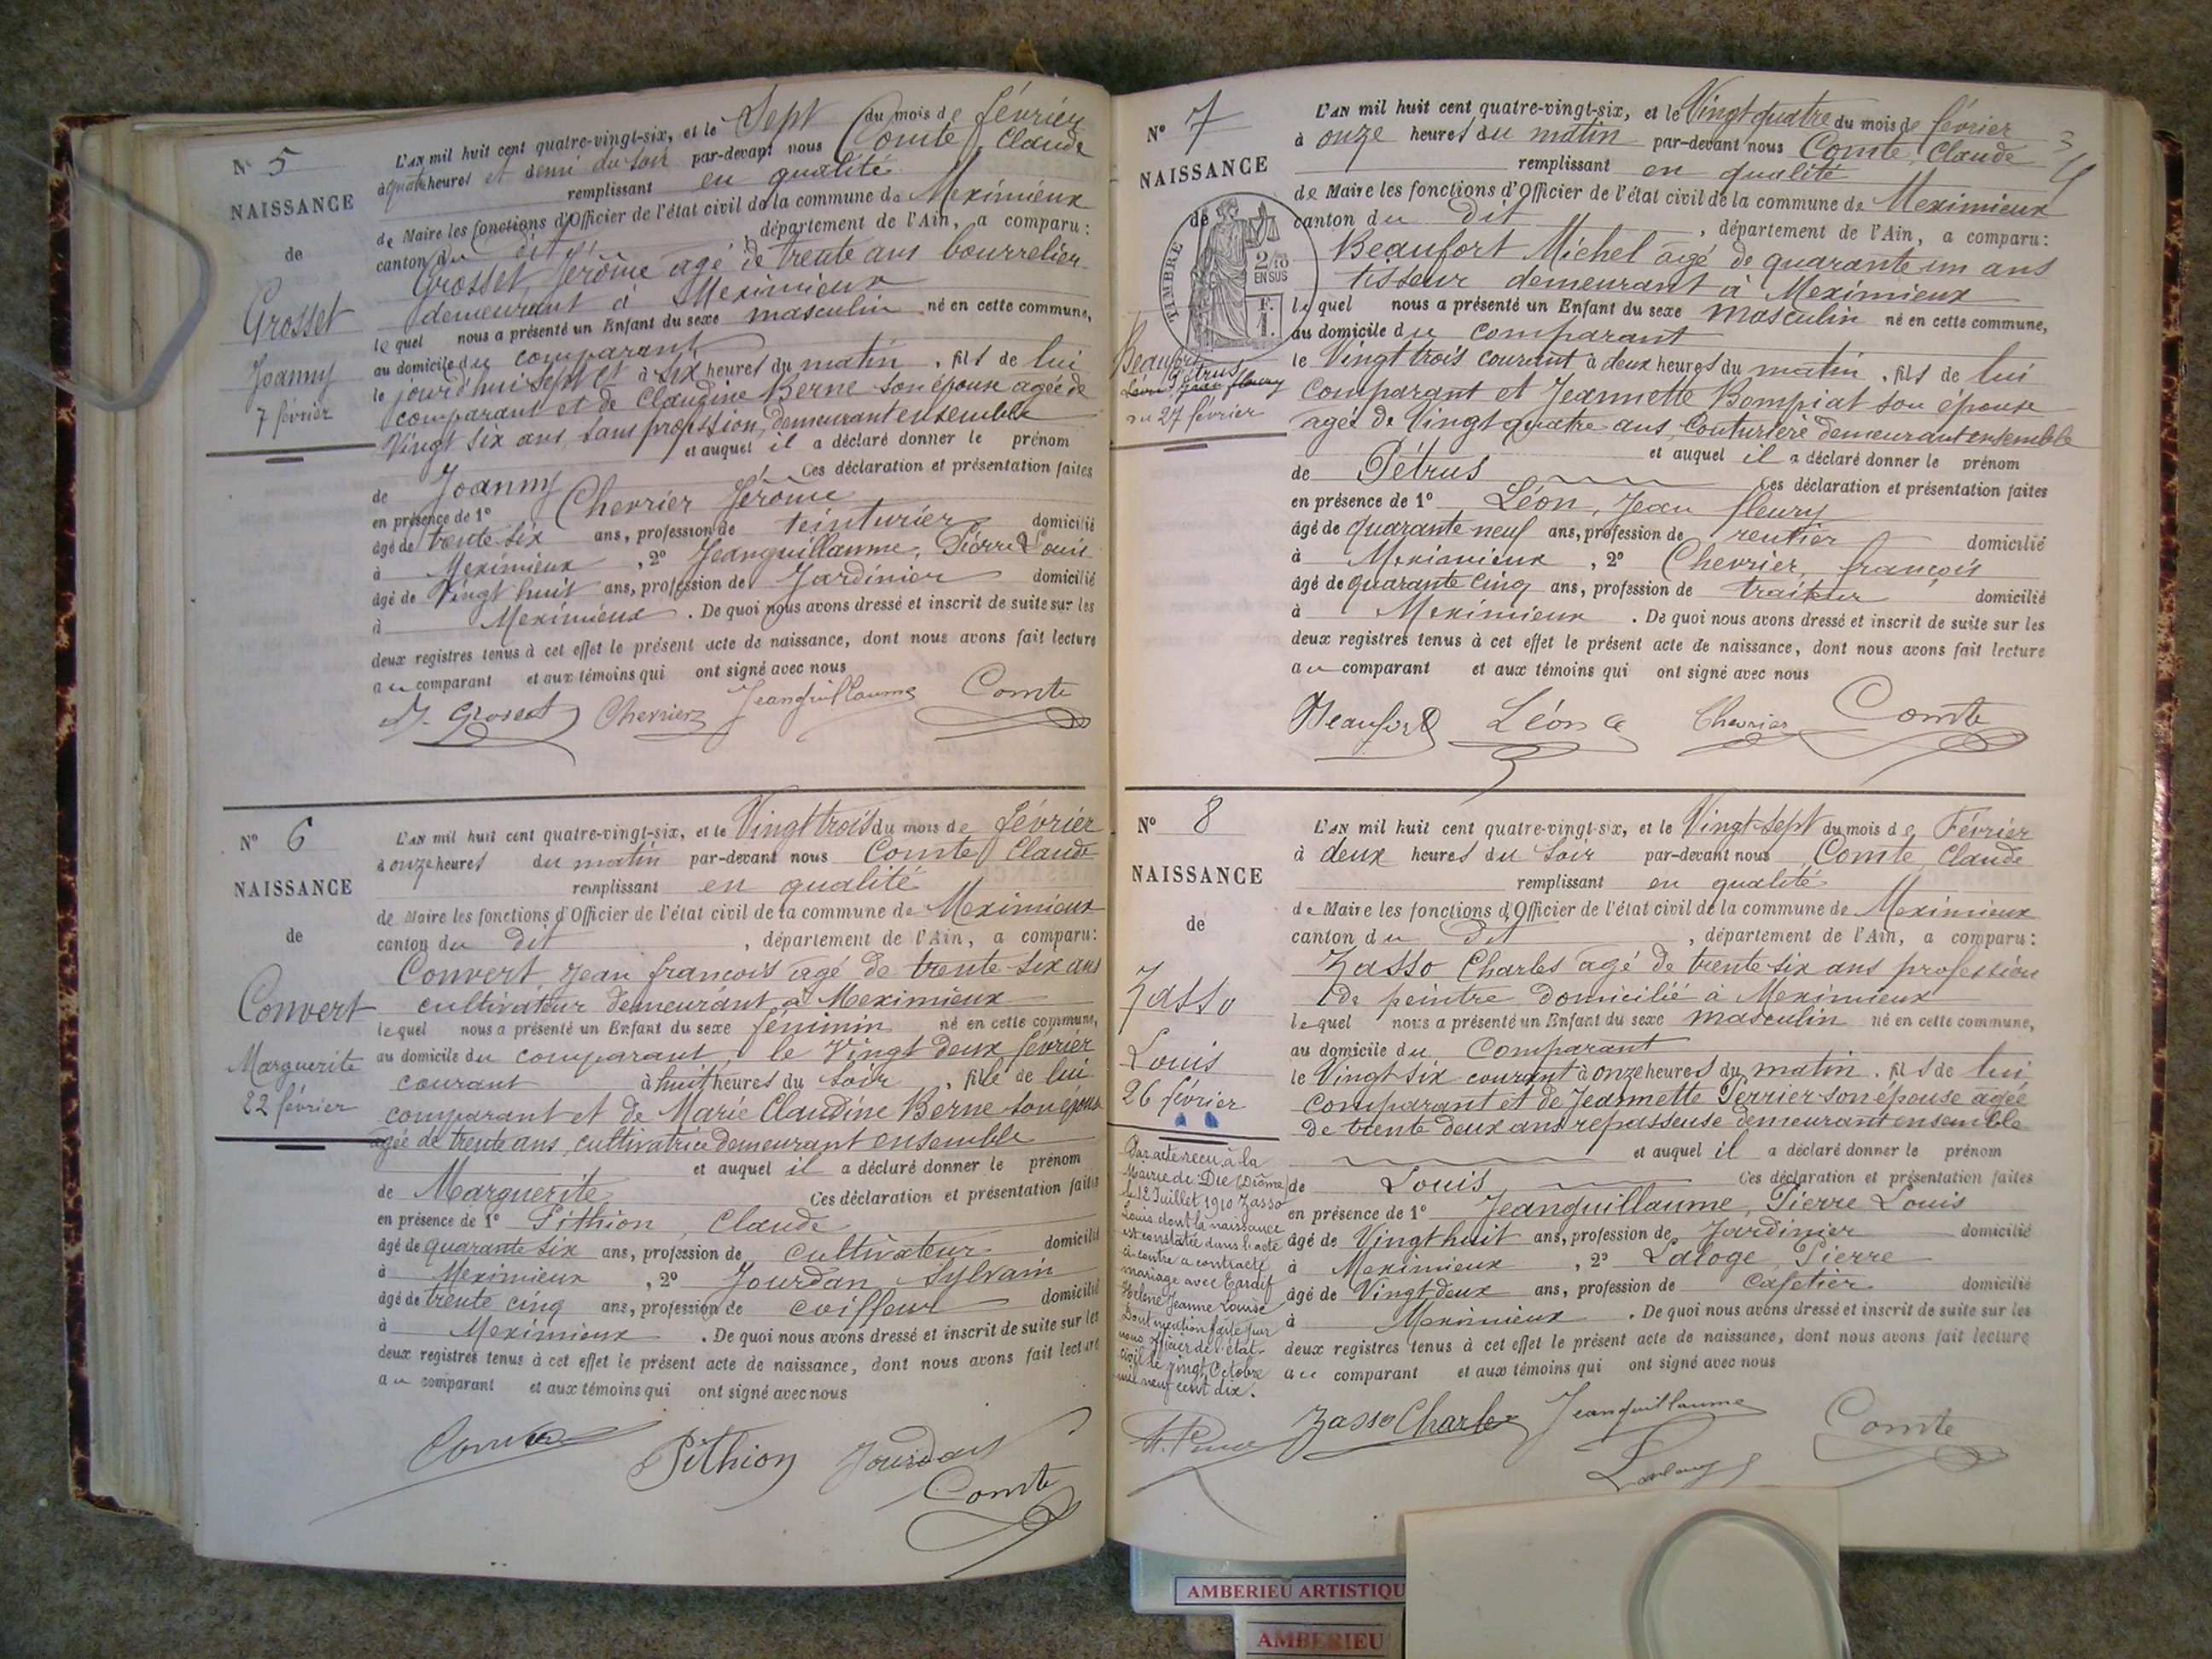 N° 5
NAISSANCE
de
Grosset
Joanny
7 février
L'AN mil huit cent quatre-vingt-six, et le Sept du mois de février
à quatre heures et demi du soir par-devant nous Comte, Claude
remplissant en qualité
de Maire les fonctions d'Officier de l'état civil de la commune de Meximieux
canton du dit, département de l'Ain, a comparu:
Grosset, Jérôme agé de trente ans bourrelier
demeurant à Meximieux
lequel nous a présenté un Enfant du sexe masculin né en cette commune,
au domicile du comparant
le jourd'hui sept et à six heures du matin, fils de lui
comparant et de Claudine Berne son épouse agée de
Vingt six ans, sans profession, demeurant ensemble
et auquel il a déclaré donner le prénom
de Joanny Ces déclaration et présentation faites
en présence de 1° Chevrier Jérôme
âgé de trente six ans, profession de teinturier domicilié
à Meximieux, 2° Jeanguillaume, Pierre Louis
âgé de Vingt huit ans, profession de Jardinier domicilié
à Meximieux. De quoi nous avons dressé et inscrit de suite sur les
deux registres tenus à cet effet le présent acte de naissance, dont nous avons fait lecture
au comparant et aux témoins qui ont signé avec nous
J. Grosset Chevrier Jeanguillaume Comte
N° 6
NAISSANCE
de
Convert
Marguerite
22 février
L'AN mil huit cent quatre-vingt-six, et le Vingt trois du mois de février
à onze heures du matin par-devant nous Comte, Claude
remplissant en qualité
de Maire les fonctions d'Officier de l'état civil de la commune de Meximieux
canton du dit, département de l'Ain, a comparu:
Convert, Jean françois agé de trente six ans
cultivateur demeurant à Meximieux
lequel nous a présenté un Enfant du sexe féminin né en cette commune,
au domicile du comparant, le Vingt deux février
courant à huit heures du soir, fille de lui
comparant et de Marie Claudine Berne son épouse
agée de trente ans, cultivatrice demeurant ensemble
et auquel il a déclaré donner le prénom
de Marguerite Ces déclaration et présentation faites
en présence de 1° Pithion, Claude
âgé de quarante six ans, profession de cultivateur domicilié
à Meximieux, 2° Jourdan, Sylvain
âgé de trente cinq ans, profession de coiffeur domicilié
à Meximieux. De quoi nous avons dressé et inscrit de suite sur les
deux registres tenus à cet effet le présent acte de naissance, dont nous avons fait lecture
au comparant et aux témoins qui ont signé avec nous
Convert Pithion Jourdan
Comte
N° 7
NAISSANCE
de
TIMBRE
2/10
EN SUS
F.
1.
Beaufort
Pétrus
Léon, Jean fleury
du 27 février
L'AN mil huit cent quatre-vingt-six, et le Vingt quatre du mois de février
à onze heures du matin par-devant nous Comte, Claude
remplissant en qualité
de Maire les fonctions d'Officier de l'état civil de la commune de Meximieux
canton du dit, département de l'Ain, a comparu:
Beaufort Michel âgé de quarante un ans
tisseur demeurant à Meximieux
lequel nous a présenté un Enfant du sexe masculin né en cette commune,
au domicile du comparant
le Vingt trois courant à deux heures du matin, fils de lui
comparant et Jeannette Bompiat son épouse
agés de Vingt quatre ans, Couturière demeurant ensemble
et auquel il a déclaré donner le prénom
de Pétrus Ces déclaration et présentation faites
en présence de 1° Léon, Jean fleury
âgé de quarante neuf ans, profession de rentier domicilié
à Meximieux, 2° Chevrier, françois
âgé de quarante cinq ans, profession de traiteur domicilié
à Meximieux. De quoi nous avons dressé et inscrit de suite sur les
deux registres tenus à cet effet le présent acte de naissance, dont nous avons fait lecture
au comparant et aux témoins qui ont signé avec nous
Beaufort Léon Chevrier Comte
N° 8
NAISSANCE
de
Zasso
Louis
26 février
Par acte reçu à la
Mairie de Die (Drôme)
le 12 Juillet 1910 Zasso
Louis dont la naissance
est constatée dans l'acte
ci-contre a contracté
mariage avec Tardif
Hélène Jeanne Louise
Dont mention faite par
nous Officier de l'état-
civil le vingt Octobre
mil neuf cent dix.
L'AN mil huit cent quatre-vingt-six, et le Vingt-sept du mois de Février
à deux heures du soir par-devant nous Comte, Claude
remplissant en qualité
de Maire les fonctions d'Officier de l'état civil de la commune de Meximieux
canton du Dit, département de l'Ain, a comparu:
Zasso Charles agé de trente six ans profession
de peintre domicilié à Meximieux
lequel nous a présenté un Enfant du sexe masculin né en cette commune,
au domicile du Comparant
le Vingt six courant à onze heures du matin, fils de lui
comparant et de Jeannette Perrier son épouse agée
de trente deux ans repasseuse demeurant ensemble
et auquel il a déclaré donner le prénom
de Louis Ces déclaration et présentation faites
en présence de 1° Jeanguillaume, Pierre Louis
âgé de Vingt huit ans, profession de Jardinier domicilié
à Meximieux, 2° Laloge, Pierre
âgé de Vingt deux ans, profession de Cafetier domicilié
à Meximieux. De quoi nous avons dressé et inscrit de suite sur les
deux registres tenus à cet effet le présent acte de naissance, dont nous avons fait lecture
au comparant et aux témoins qui ont signé avec nous
Zasso Charles Jeanguillaume Comte
AMBERIEU ARTISTIQU
AMBERIEU